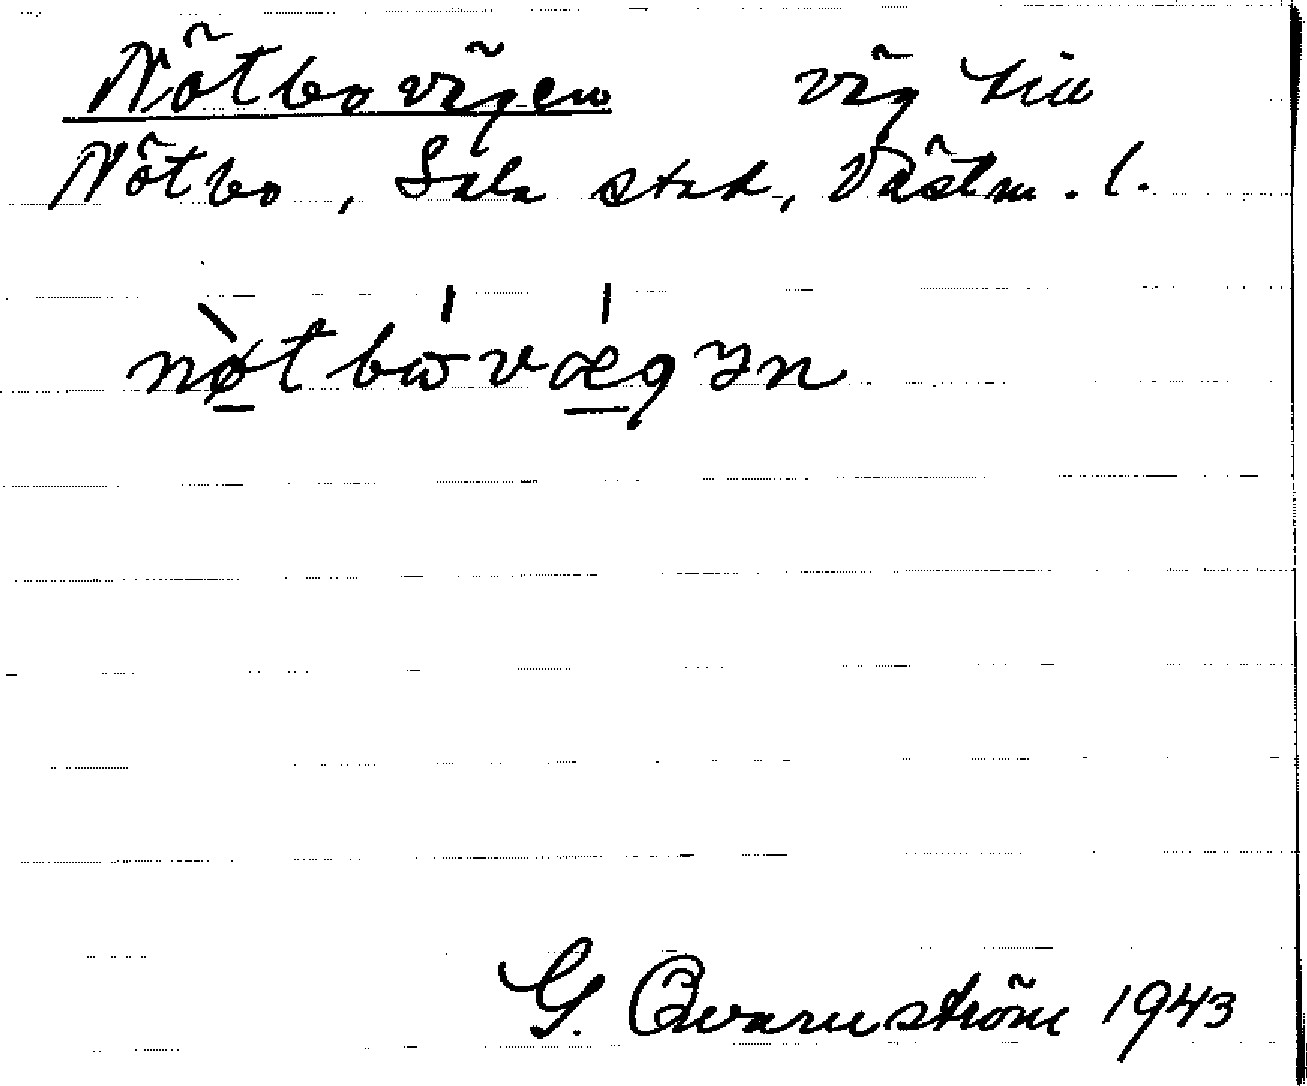 Nötbovägen väg till
Nötbo, Sala stad, Västm. l.
nø̀tbω̍væ̍gɘn
G. Qvarnström 1943